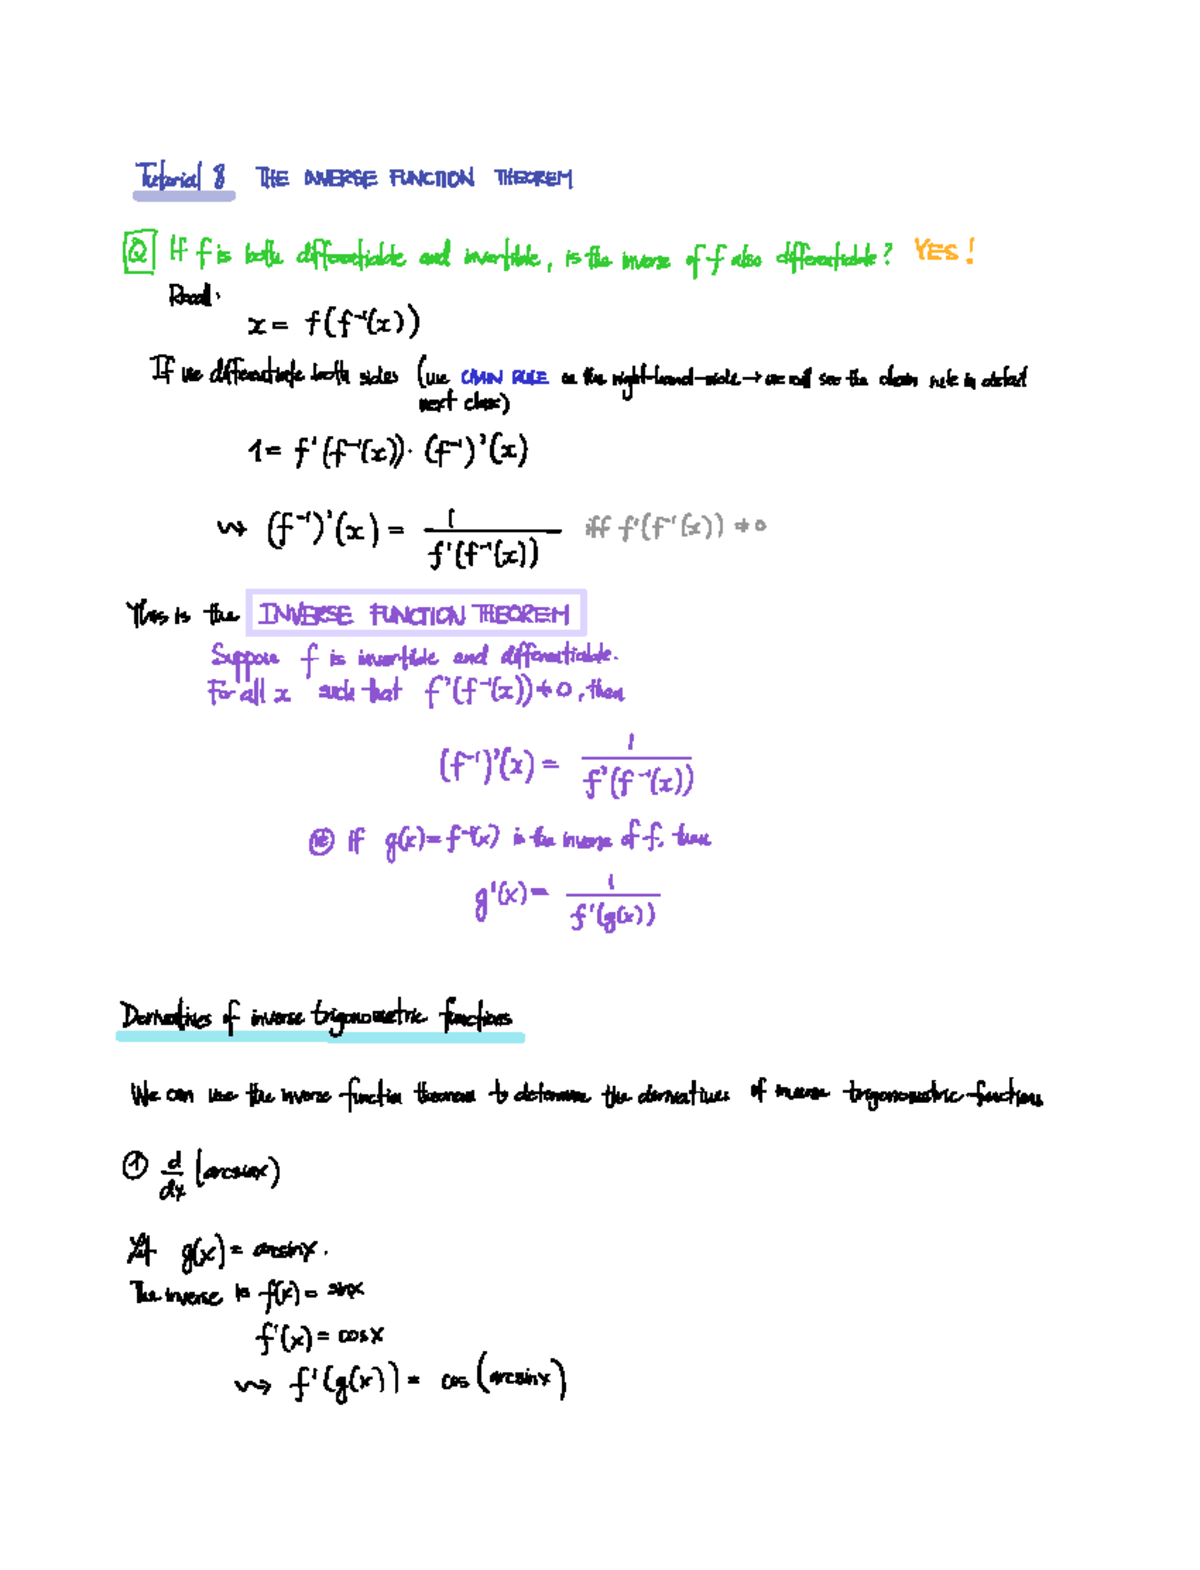 Tutorial 8 THE INVERSE FUNCTION THEOREM
Q If f is both differentiable and invertible, is the inverse of f also differentiable? YES!
Recall:
x = f(f⁻¹(x))
If we differentiate both sides (use CHAIN RULE on the right-hand-side → we will see the chain rule in detail
next class)
1 = f'(f⁻¹(x)) · (f⁻¹)'(x)
⇝ (f⁻¹)'(x) = 1 / f'(f⁻¹(x)) iff f'(f⁻¹(x)) ≠ 0
This is the INVERSE FUNCTION THEOREM
Suppose f is invertible and differentiable.
For all x such that f'(f⁻¹(x)) ≠ 0, then
(f⁻¹)'(x) = 1 / f'(f⁻¹(x))
If g(x) = f⁻¹(x) is the inverse of f, then
g'(x) = 1 / f'(g(x))
Derivatives of inverse trigonometric functions
We can use the inverse function theorem to determine the derivatives of inverse trigonometric functions
① d/dx (arcsinx)
Let g(x) = arcsinx.
The inverse is f(x) = sinx
f'(x) = cosx
⇝ f'(g(x)) = cos(arcsinx)